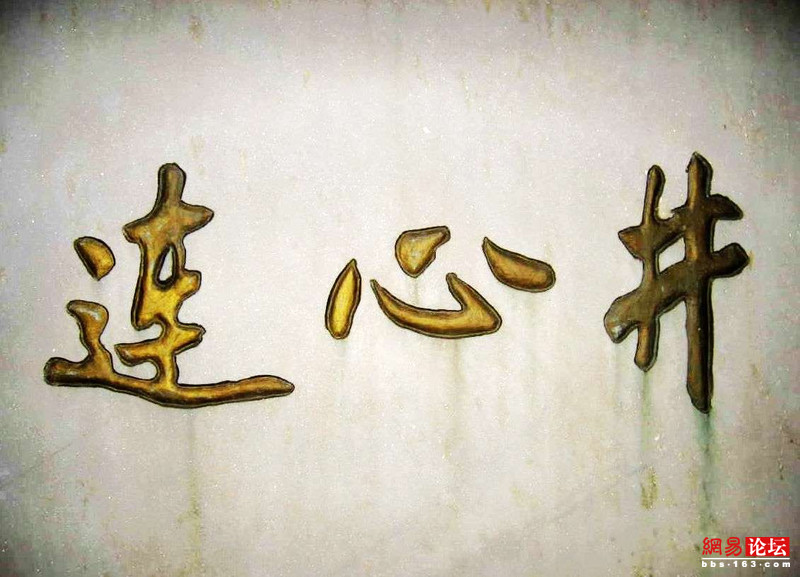 连心井
網易论坛
bbs.163.com